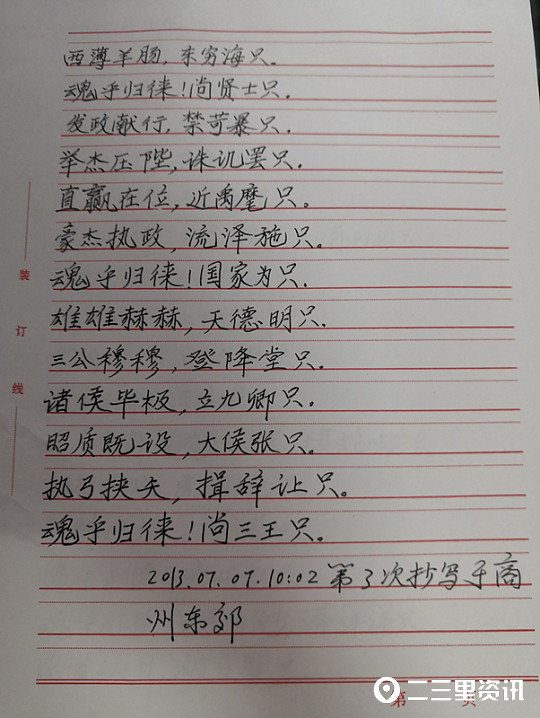 西薄羊肠,东穷海只.
魂乎归徕!尚贤士只.
发政献行,禁苛暴只.
举杰压陛,诛讥罢只.
直赢在位,近禹麾只.
豪杰执政,流泽施只.
魂乎归徕!国家为只.
雄雄赫赫,天德明只.
三公穆穆,登降堂只.
诸侯毕极,立九卿只.
昭质既设,大侯张只.
执弓挟矢,揖辞让只。
魂乎归徕!尚三王只.
2013.07.07.10:02 第3次抄写于商
州东郊
装
订
线
第 页
二三里资讯